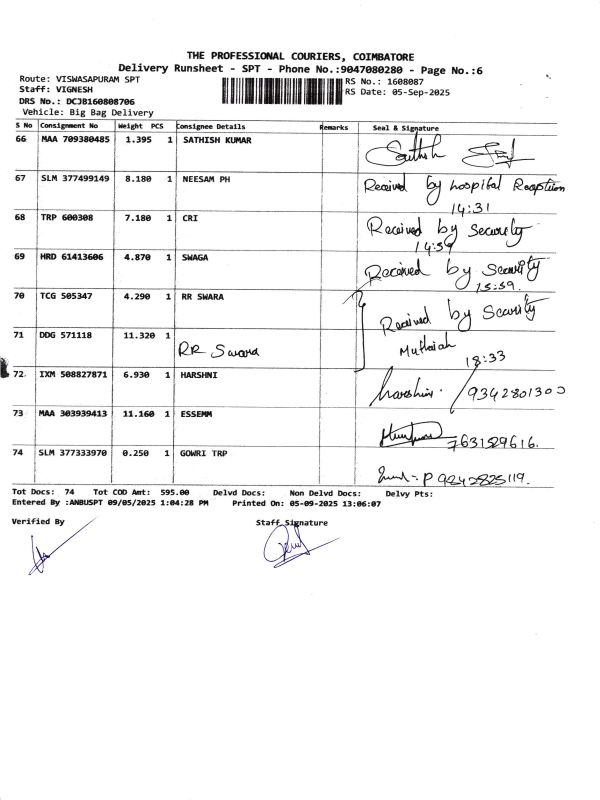 THE PROFESSIONAL COURIERS, COIMBATORE
Delivery Runsheet - SPT - Phone No.:9047080280 - Page No.:6
Route: VISWASAPURAM SPT
RS No.: 1608087
Staff: VIGNESH
RS Date: 05-Sep-2025
DRS No.: DCJB160808706
Vehicle: Big Bag Delivery
S No Consignment No Weight PCS Consignee Details Remarks Seal & Signature
66 MAA 709380485 1.395 1 SATHISH KUMAR Sathish
67 SLM 377499149 8.180 1 NEESAM PH Received by hospital Reception
14:31
68 TRP 600308 7.180 1 CRI Received by Security
14:59
69 HRD 61413606 4.870 1 SWAGA Received by Security
15:59.
70 TCG 505347 4.290 1 RR SWARA Received by Security
71 DDG 571118 11.320 1 RR Swara Muthaiah
18:33
72 IXM 508827871 6.930 1 HARSHNI harshini / 9342801300
73 MAA 303939413 11.160 1 ESSEMM 7631529616.
74 SLM 377333970 0.250 1 GOWRI TRP P 9242825119.
Tot Docs: 74 Tot COD Amt: 595.00 Delvd Docs: Non Delvd Docs: Delvy Pts:
Entered By :ANBUSPT 09/05/2025 1:04:28 PM Printed On: 05-09-2025 13:06:07
Verified By Staff Signature